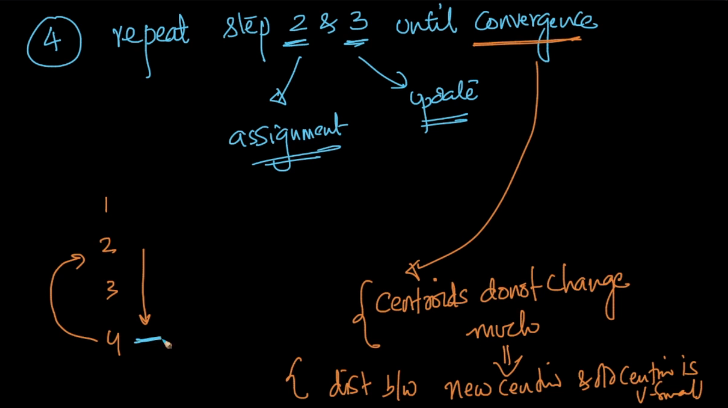 4 repeat step 2 & 3 until convergence
assignment
update
1
2
3
4
centroids do not change
much
dist b/w new centroid & old centroid is
small